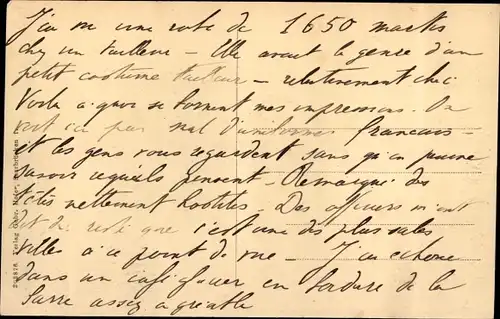 J'ai vu une robe de 1650 marks
chez un tailleur – Elle avait le genre d'un
petit costume tailleur – relativement chic
Voila a quoi se bornent mes impressions. On
voit ici pas mal d'uniformes français –
et les gens vous regardent sans qu'on puisse
savoir ce qu'ils pensent – Remarqué des
nettement hostiles – Des officiers m'ont
dit que c'est une des plus sales
villes à ce point de vue – J'ai
dans un café en bordure de la
Sarre assez agréable
Verlag Gebr.